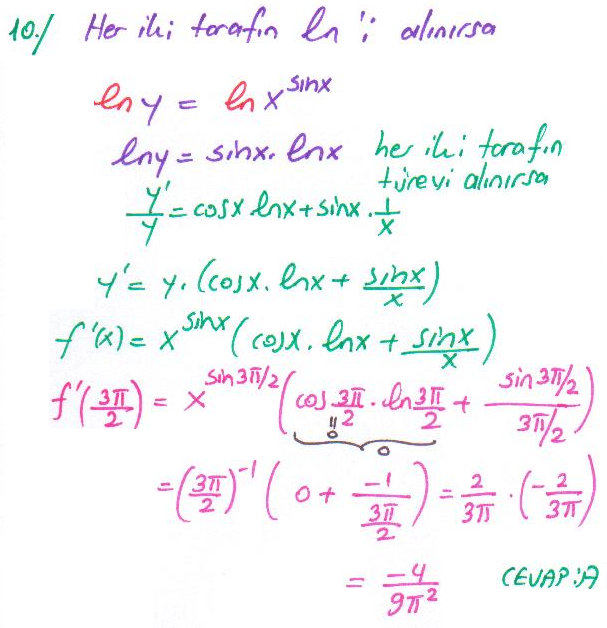 10./ Her iki tarafın ln 'i alınırsa
ln y = ln x^sinx
lny = sinx. lnx her iki tarafın
türevi alınırsa
y'/y = cosx lnx + sinx . 1/x
y' = y. (cosx. lnx + sinx/x)
f'(x) = x^sinx (cosx. lnx + sinx/x)
f'(3π/2) = x^sin3π/2 (cos 3π/2 . ln 3π/2 + sin3π/2 / 3π/2)
0 0
= (3π/2)^-1 (0 + -1 / 3π/2) = 2/3π . (-2/3π)
= -4/9π² CEVAP:A